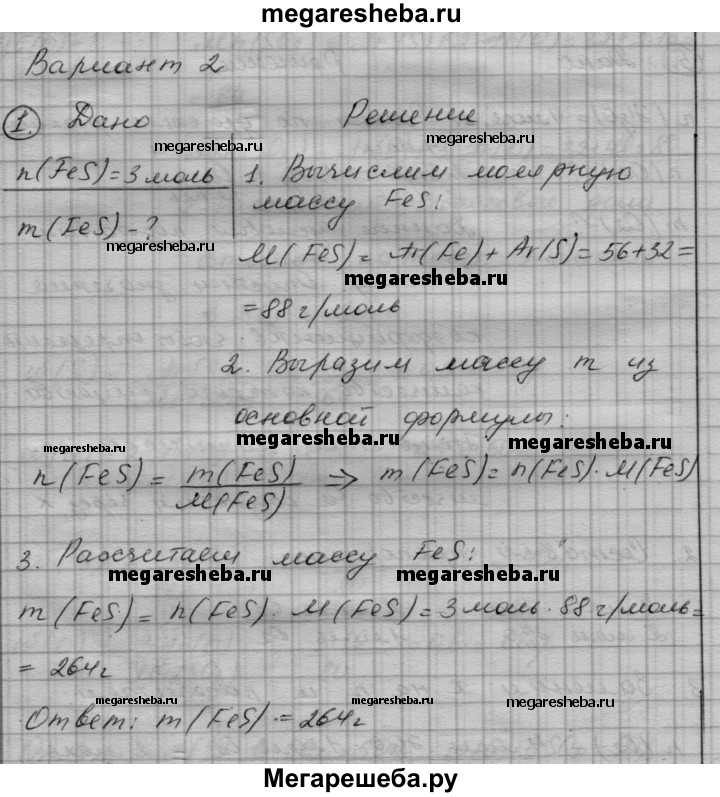 megaresheba.ru
Вариант 2
1. Дано Решение
megaresheba.ru megaresheba.ru
n(FeS)=3 моль 1. Вычислим молярную
массу FeS:
m(FeS)-?
megaresheba.ru
M(FeS)= Ar(Fe)+Ar(S)=56+32=
megaresheba.ru
=88 г/моль
2. Выразим массу m из
основной формулы:
megaresheba.ru megaresheba.ru megaresheba.ru
n(FeS)= m(FeS)/M(FeS) => m(FeS)=n(FeS)·M(FeS)
3. Рассчитаем массу FeS:
megaresheba.ru megaresheba.ru
m(FeS)=n(FeS)·M(FeS)=3 моль·88 г/моль=
=264 г
megaresheba.ru megaresheba.ru megaresheba.ru
Ответ: m(FeS)=264 г
Мегарешеба.ру